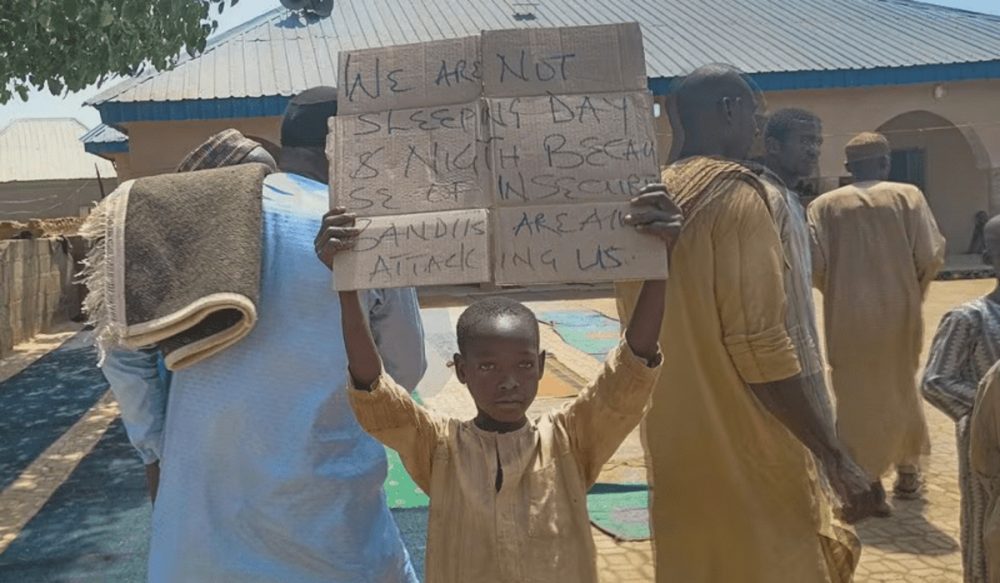 WE ARE NOT
SLEEPING DAY
& NIGTH BECAU
SE OF INSECURI
BANDITS ARE ALL
ATTACKING US.